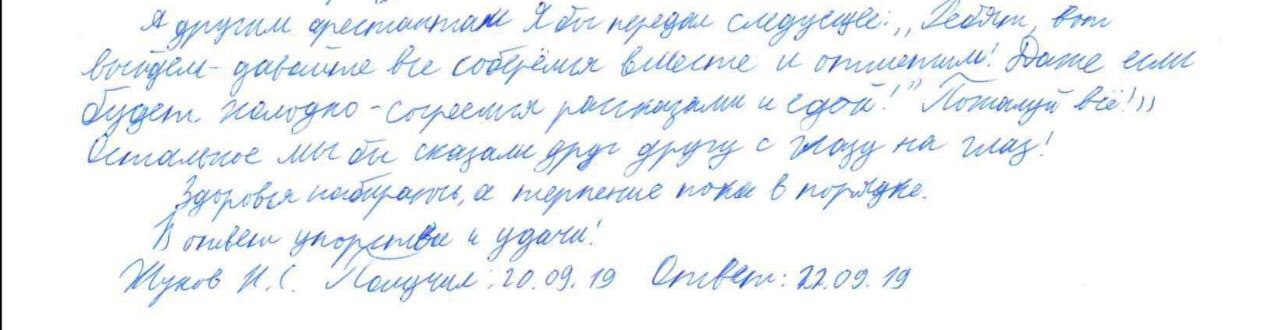 А другим арестантам я бы передал следующее: ,,Ребят, вот
выйдем - давайте все соберёмся вместе и отметим! Даже если
будет холодно - согреемся рассказами и едой!" Пожалуй всё!))
Остальное мы бы сказали друг другу с глазу на глаз!
Здоровья набираюсь, а терпение пока в порядке.
В ответ упорства и удачи!
Жуков И.С. Получил: 20.09.19 Ответ: 22.09.19